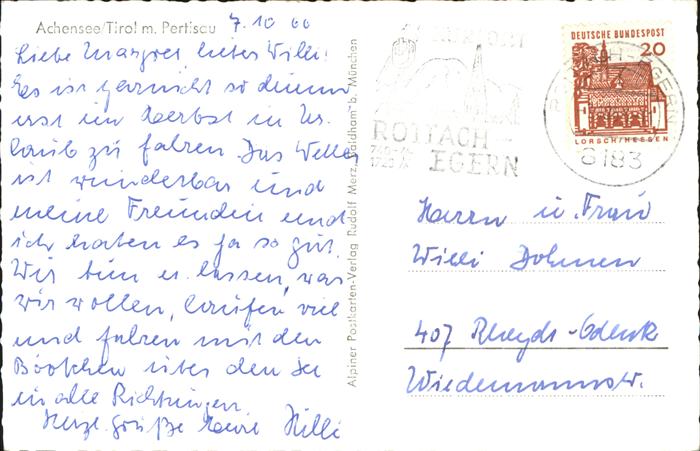 Achensee/Tirol m. Pertisau 7.10.66
Liebe Margret, lieber Willi!
Es ist garnicht so dumm
erst im Herbst in Ur-
laub zu fahren. Das Wetter
ist wunderbar und
meine Freundin und
ich haben es ja so gut.
Wir tun u. lassen, was
wir wollen, laufen viel
und fahren mit den
Bötchen über den See
in alle Richtungen.
Herzl. Grüße Eure Hilli
Alpiner Postkarten-Verlag Rudolf Merz, Baldham b. München
ROTTACH-
EGERN
DEUTSCHE BUNDESPOST
20
LORSCH/HESSEN
8183
Herrn u. Frau
Willi Dohmen
407 Rheydt-Odenk.
Wiedemannstr.